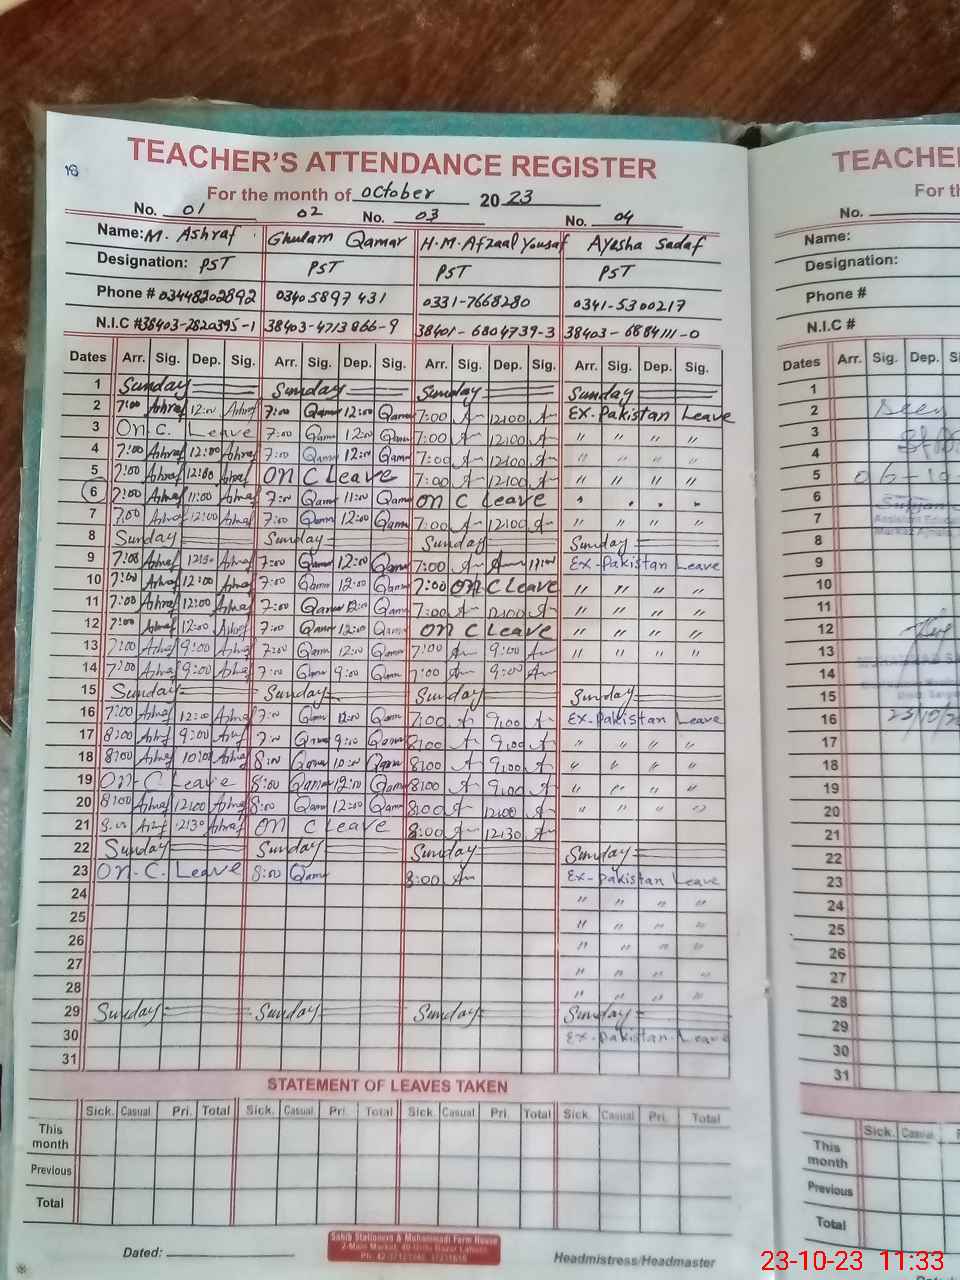 TEACHER'S ATTENDANCE REGISTER
18
For the month of October 2023
No. 01 02 No. 03 No. 04
Name: M. Ashraf Ghulam Qamar H.M. Afzaal Yousaf Ayesha Sadaf
Designation: PST PST PST PST
Phone # 03448202892 0340 5897 431 0331-7668280 0341-5300217
N.I.C # 38403-2820395-1 38403-4713 -9 38401-6804739-3 38403-6884111-0
Dates Arr. Sig. Dep. Sig. Arr. Sig. Dep. Sig. Arr. Sig. Dep. Sig. Arr. Sig. Dep. Sig.
1 Sunday Sunday Sunday Sunday
2 7:00 Ashraf 12:00 Ashraf 7:00 Qamar 12:00 Qamar 7:00 12:00 Ex-Pakistan Leave
3 On C. Leave 7:00 Qamar 12:00 Qamar 7:00 12:00 " " " "
4 7:00 Ashraf 12:00 Ashraf 7:00 Qamar 12:00 Qamar 7:00 12:00 " " " "
5 7:00 Ashraf 12:00 Ashraf On C Leave 7:00 12:00 " " " "
6 7:00 Ashraf 11:00 Ashraf 7:00 Qamar 11:00 Qamar On C Leave
7 7:00 Ashraf 12:00 Ashraf 7:00 Qamar 12:00 Qamar 7:00 12:00 " " " "
8 Sunday Sunday Sunday Sunday
9 7:00 Ashraf 1230 Ashraf 7:00 Qamar 12:00 Qamar 7:00 Ex-Pakistan Leave
10 7:00 Ashraf 12:00 Ashraf 7:00 Qamar 12:00 Qamar 7:00 On C Leave " " " "
11 7:00 Ashraf 12:00 Ashraf 7:00 Qamar 12:00 Qamar 7:00 12:00 " " " "
12 7:00 Ashraf 12:00 Ashraf 7:00 Qamar 12:00 Qamar On C Leave " " " "
13 7:00 Ashraf 9:00 Ashraf 7:00 Qamar 12:00 Qamar 7:00 9:00 " " " "
14 7:00 Ashraf 9:00 Ashraf 7:00 Qamar 9:00 Qamar 7:00 9:00
15 Sunday Sunday Sunday Sunday
16 7:00 Ashraf 12:00 Ashraf 7:00 Qamar 12:00 Qamar 7:00 9:00 Ex-Pakistan Leave
17 8:00 Ashraf 9:00 Ashraf Qamar 9:00 Qamar 8:00 9:00 " " " "
18 8:00 Ashraf 10:00 Ashraf 8:00 Qamar 10:00 Qamar 8:00 9:00 " " " "
19 On C Leave 8:00 Qamar 12:00 Qamar 8:00 9:00 " " " "
20 8:00 Ashraf 12:00 Ashraf 8:00 Qamar 12:00 Qamar 8:00 12:00 " " " "
21 8:00 Ashraf 1230 Ashraf On C Leave 8:00 12:30
22 Sunday Sunday Sunday Sunday
23 On C. Leave 8:00 Qamar 8:00 Ex-Pakistan Leave
24 " " " "
25 " " " "
26 " " " "
27 " " " "
28 " " " "
29 Sunday Sunday Sunday Sunday
30 Ex-Pakistan Leave
31
STATEMENT OF LEAVES TAKEN
Sick. Casual Pri. Total Sick. Casual Pri. Total Sick. Casual Pri. Total Sick. Casual Pri. Total
This month
Previous
Total
Dated:
Sahib Stationers & Muhammadi Farm House
2-Main Market, 40-Urdu Bazar Lahore
Headmistress/Headmaster
TEACHE
For th
No.
Name:
Designation:
Phone #
N.I.C #
Dates Arr. Sig. Dep. Sig.
1
2 Seen
3
4
5 06-10
6
7
8
9
10
11
12
13
14
15
16 23/10/2
17
18
19
20
21
22
23
24
25
26
27
28
29
30
31
Sick. Casual
This month
Previous
Total
23-10-23 11:33